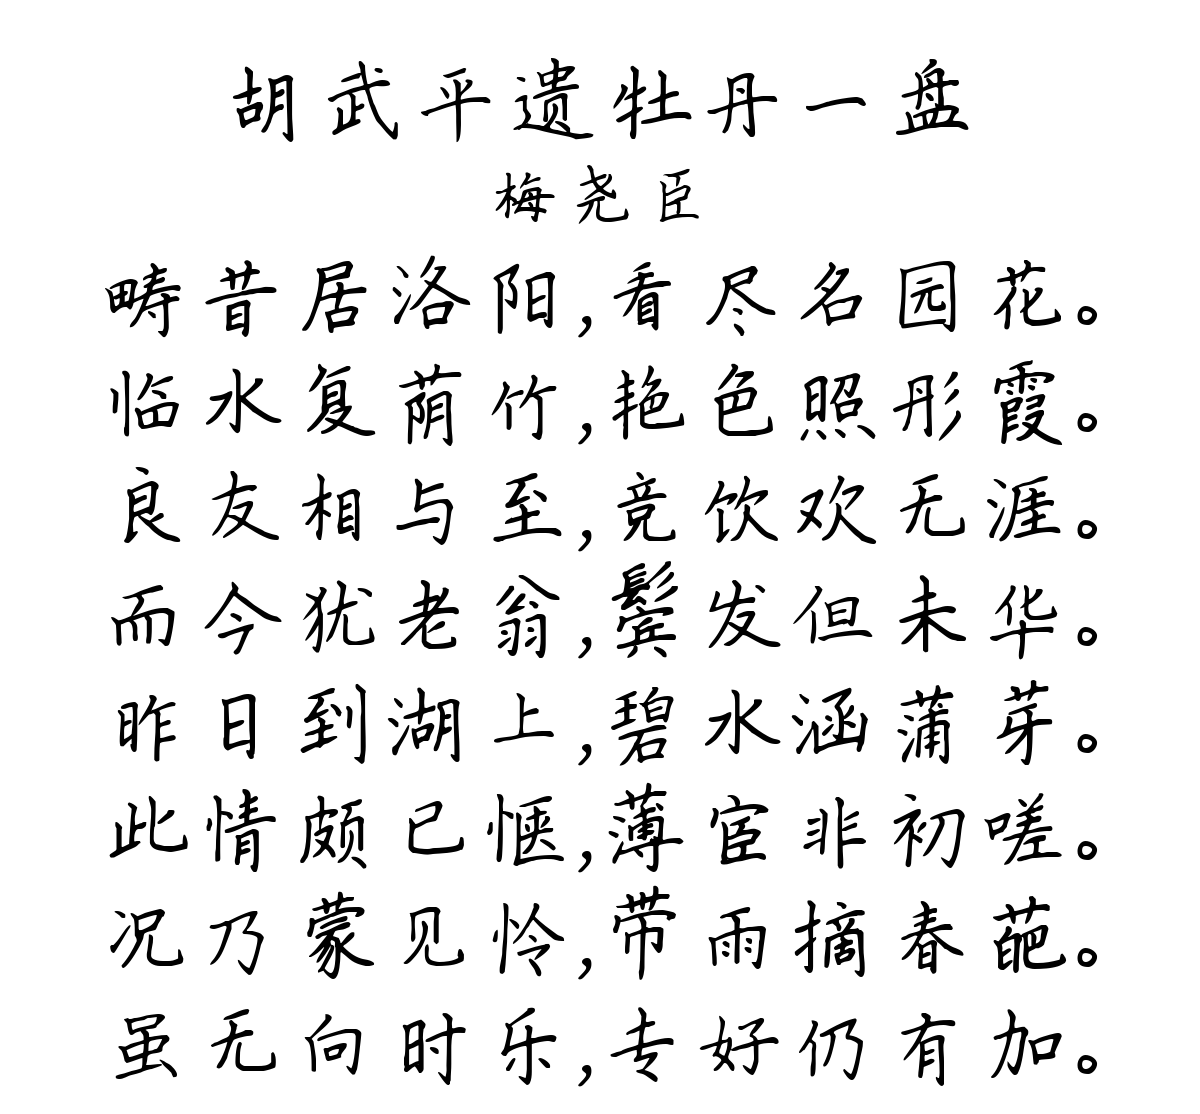 胡武平遗牡丹一盘
梅尧臣
畴昔居洛阳,看尽名园花。
临水复荫竹,艳色照彤霞。
良友相与至,竞饮欢无涯。
而今犹老翁,鬓发但未华。
昨日到湖上,碧水涵蒲芽。
此情颇已惬,薄宦非初嗟。
况乃蒙见怜,带雨摘春葩。
虽无向时乐,专好仍有加。